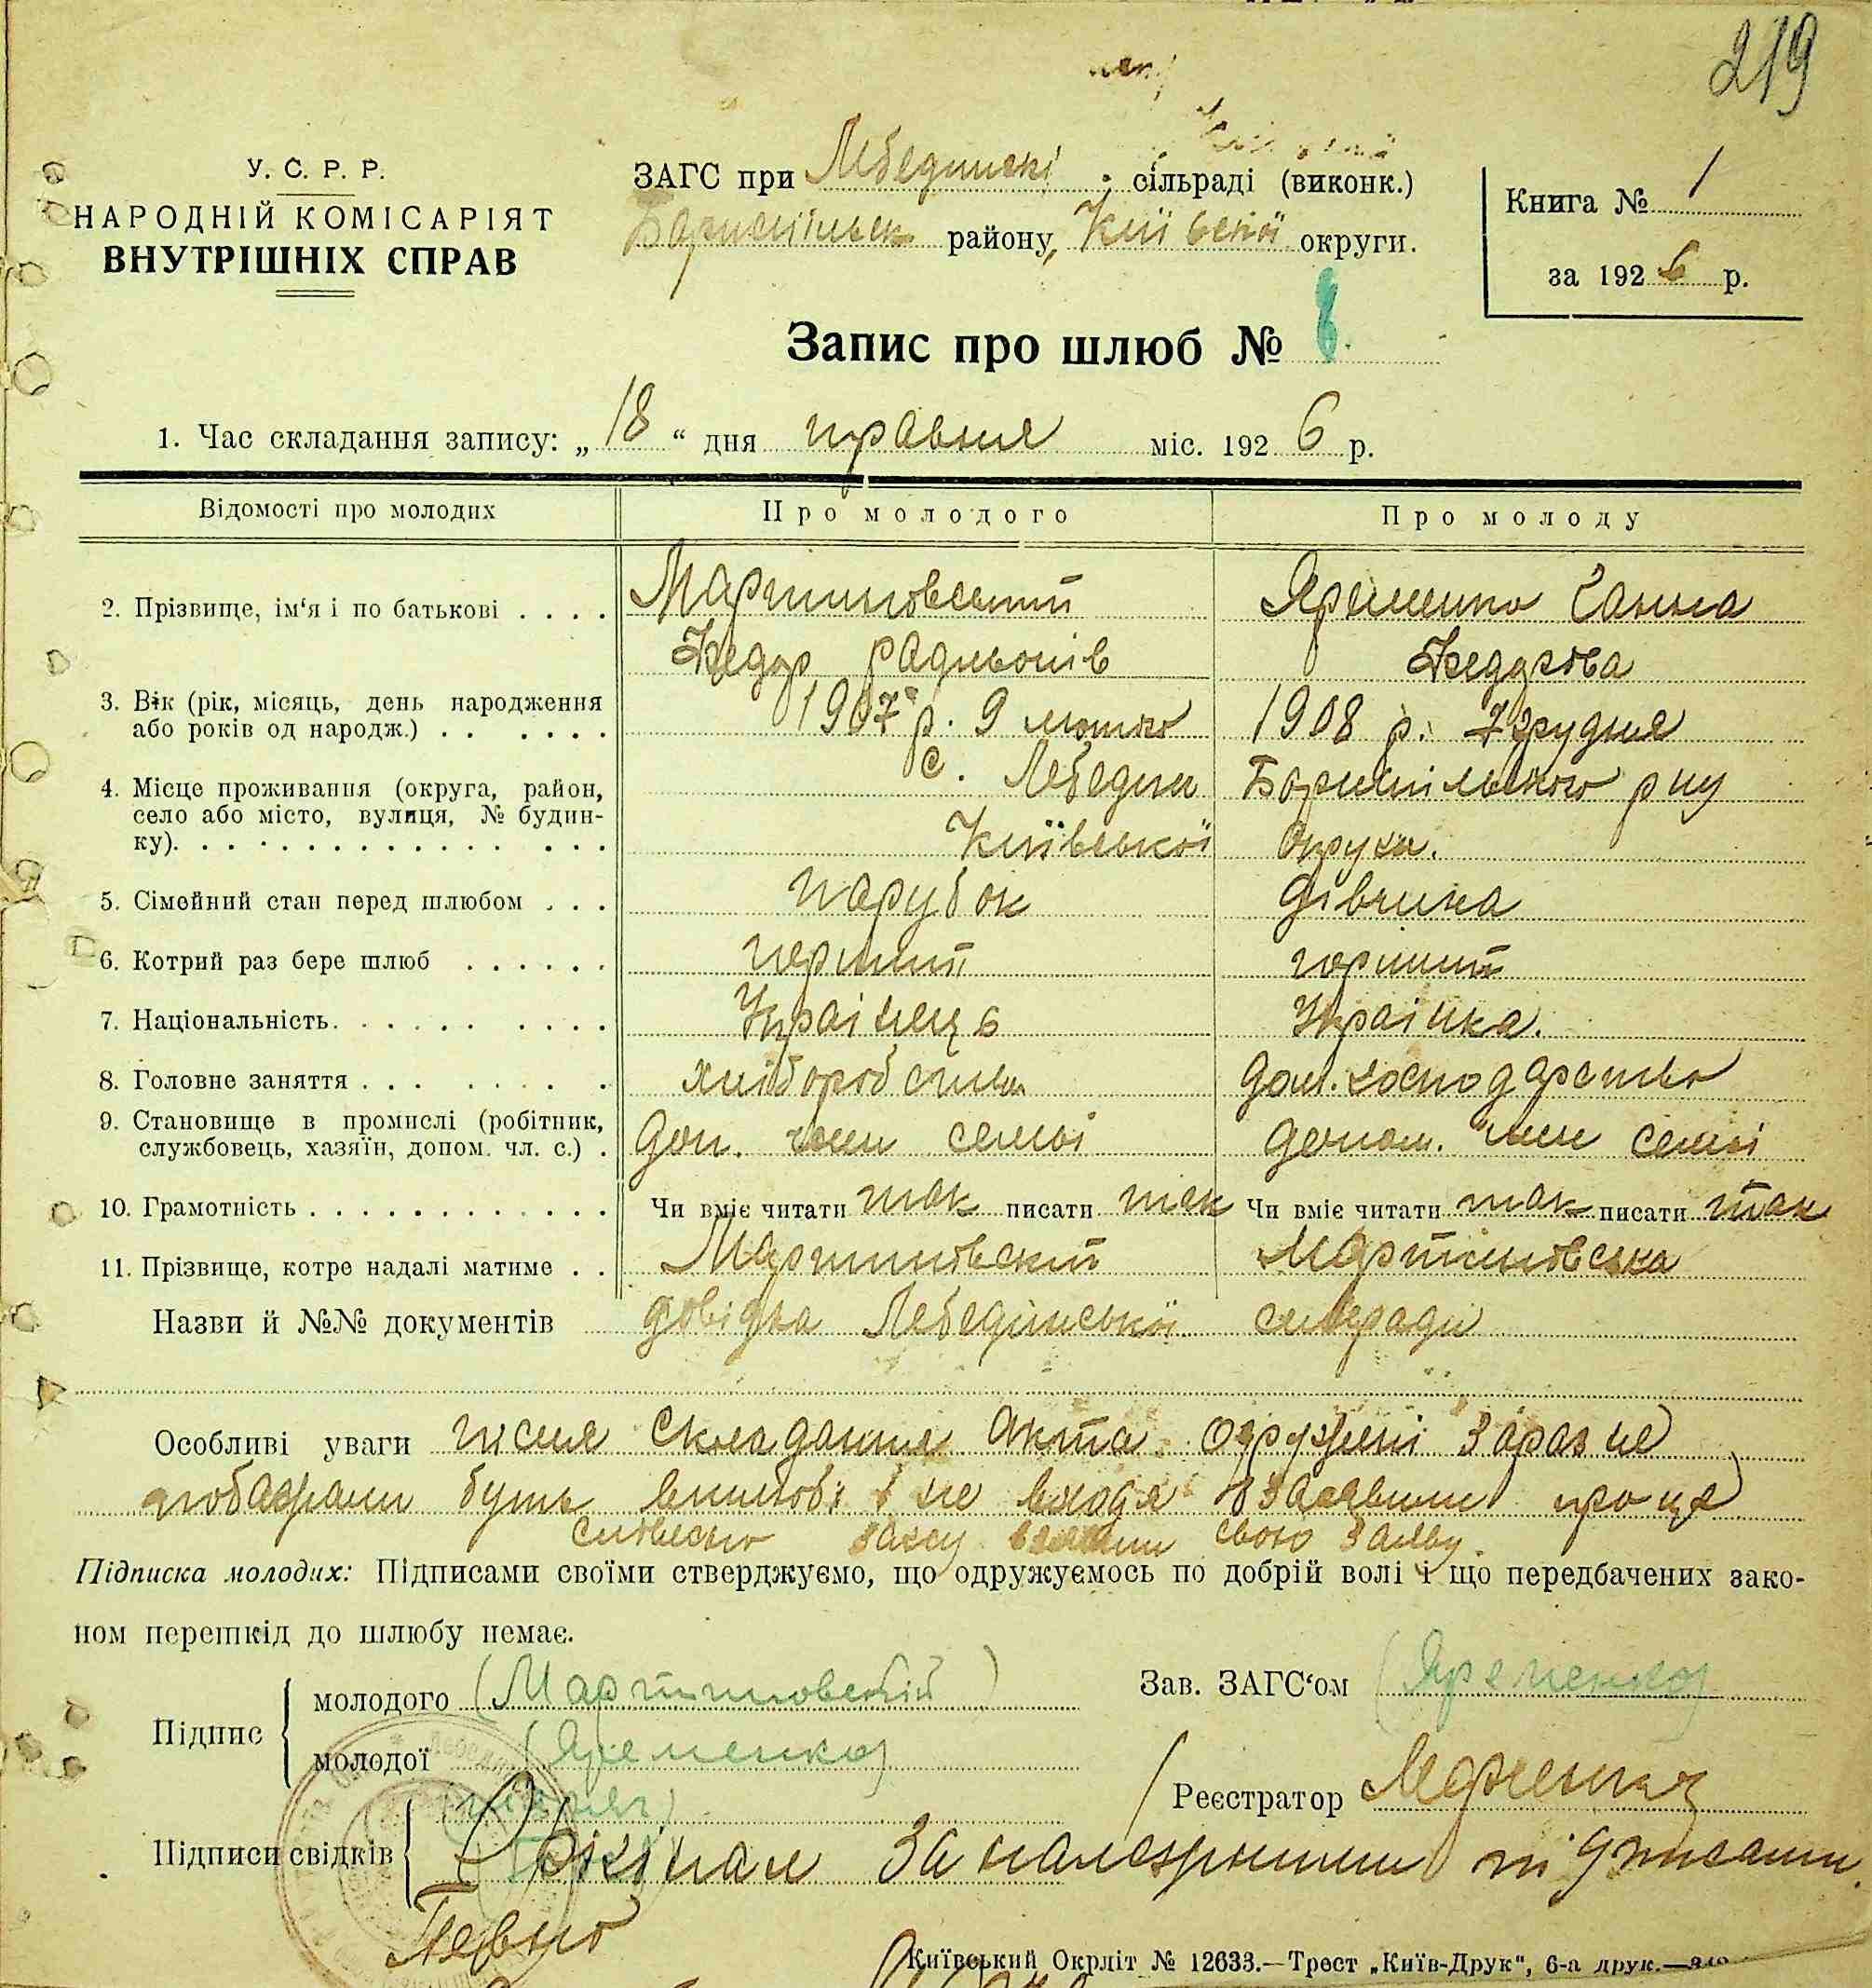 219
У. С. Р. Р.
НАРОДНІЙ КОМІСАРІЯТ
ВНУТРІШНІХ СПРАВ
ЗАГС при Лебединскі сільраді (виконк.)
Бориспільськ району, Київської округи.
Книга № 1
за 1926 р.
Запис про шлюб № 8.
1. Час складання запису: „18“ дня травня міс. 1926 р.
Відомості про молодих Про молодого Про молоду
2. Прізвище, ім‘я і по батькові . . . . Мартиновський Яременко Ганна
Федор Радивонів Федорова
3. Вік (рік, місяць, день народження
або років од народж.) . . . . . . 1907 р. 9 лютого 1908 р. 7 грудня
4. Місце проживання (округа, район,
село або місто, вулиця, № будин-
ку). с. Лебедин Бориспільського р ну
Київської Округи.
5. Сімейний стан перед шлюбом . . . парубок дівчина
6. Котрий раз бере шлюб . . . . . . перший перший
7. Національність. . . . . . . . . . Українець Українка.
8. Головне заняття . . . . . . . . хліборобство дом. господарство
9. Становище в промислі (робітник,
службовець, хазяїн, допом. чл. с.) . Доп. член семьі допом. член семьі
10. Грамотність . . . . . . . . . . . . Чи вміє читати так писати так Чи вміє читати так писати так
11. Прізвище, котре надалі матиме . . Мартиновский Мартиновська
Назви й №№ документів довідка Лебедінської сільради
Особливі уваги після складання акта одружені зараз не
побажали буть і не заявили про це
словесно свою заяву.
Підписка молодих: Підписами своїми стверджуємо, що одружуємось по добрій волі і що передбачених зако-
ном перешкід до шлюбу немає.
Підпис
молодого (Мартиновський)
молодої (Яременко)
Зав. ЗАГС‘ом (Яременко)
Реєстратор
Підписи свідків
Орігінал За належными підписами.
Певно
Київський Окрліт № 12633.—Трест „Київ-Друк“, 6-а друк.—